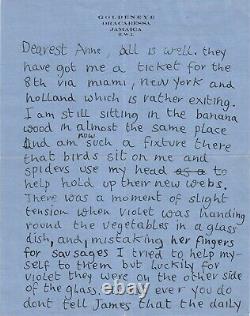 GOLDENEYE
ORACABESSA
JAMAICA
B.W.I.
Dearest Anne, All is well. they
have got me a ticket for the
8th via miami, New York and
holland which is rather exiting.
I am still sitting in the banana
wood in almost the same place
now
And am such a fixture there
that birds sit on me and
spiders use my head as a to
help hold up their new webs.
There was a moment of slight
tension when violet was handing
round the vegetables in a glass
dish, and, mistaking her fingers
for sausages I tried to help my-
self to them but luckily for
violet they were on the other side
of the glass. What ever you do
dont tell James that the daily